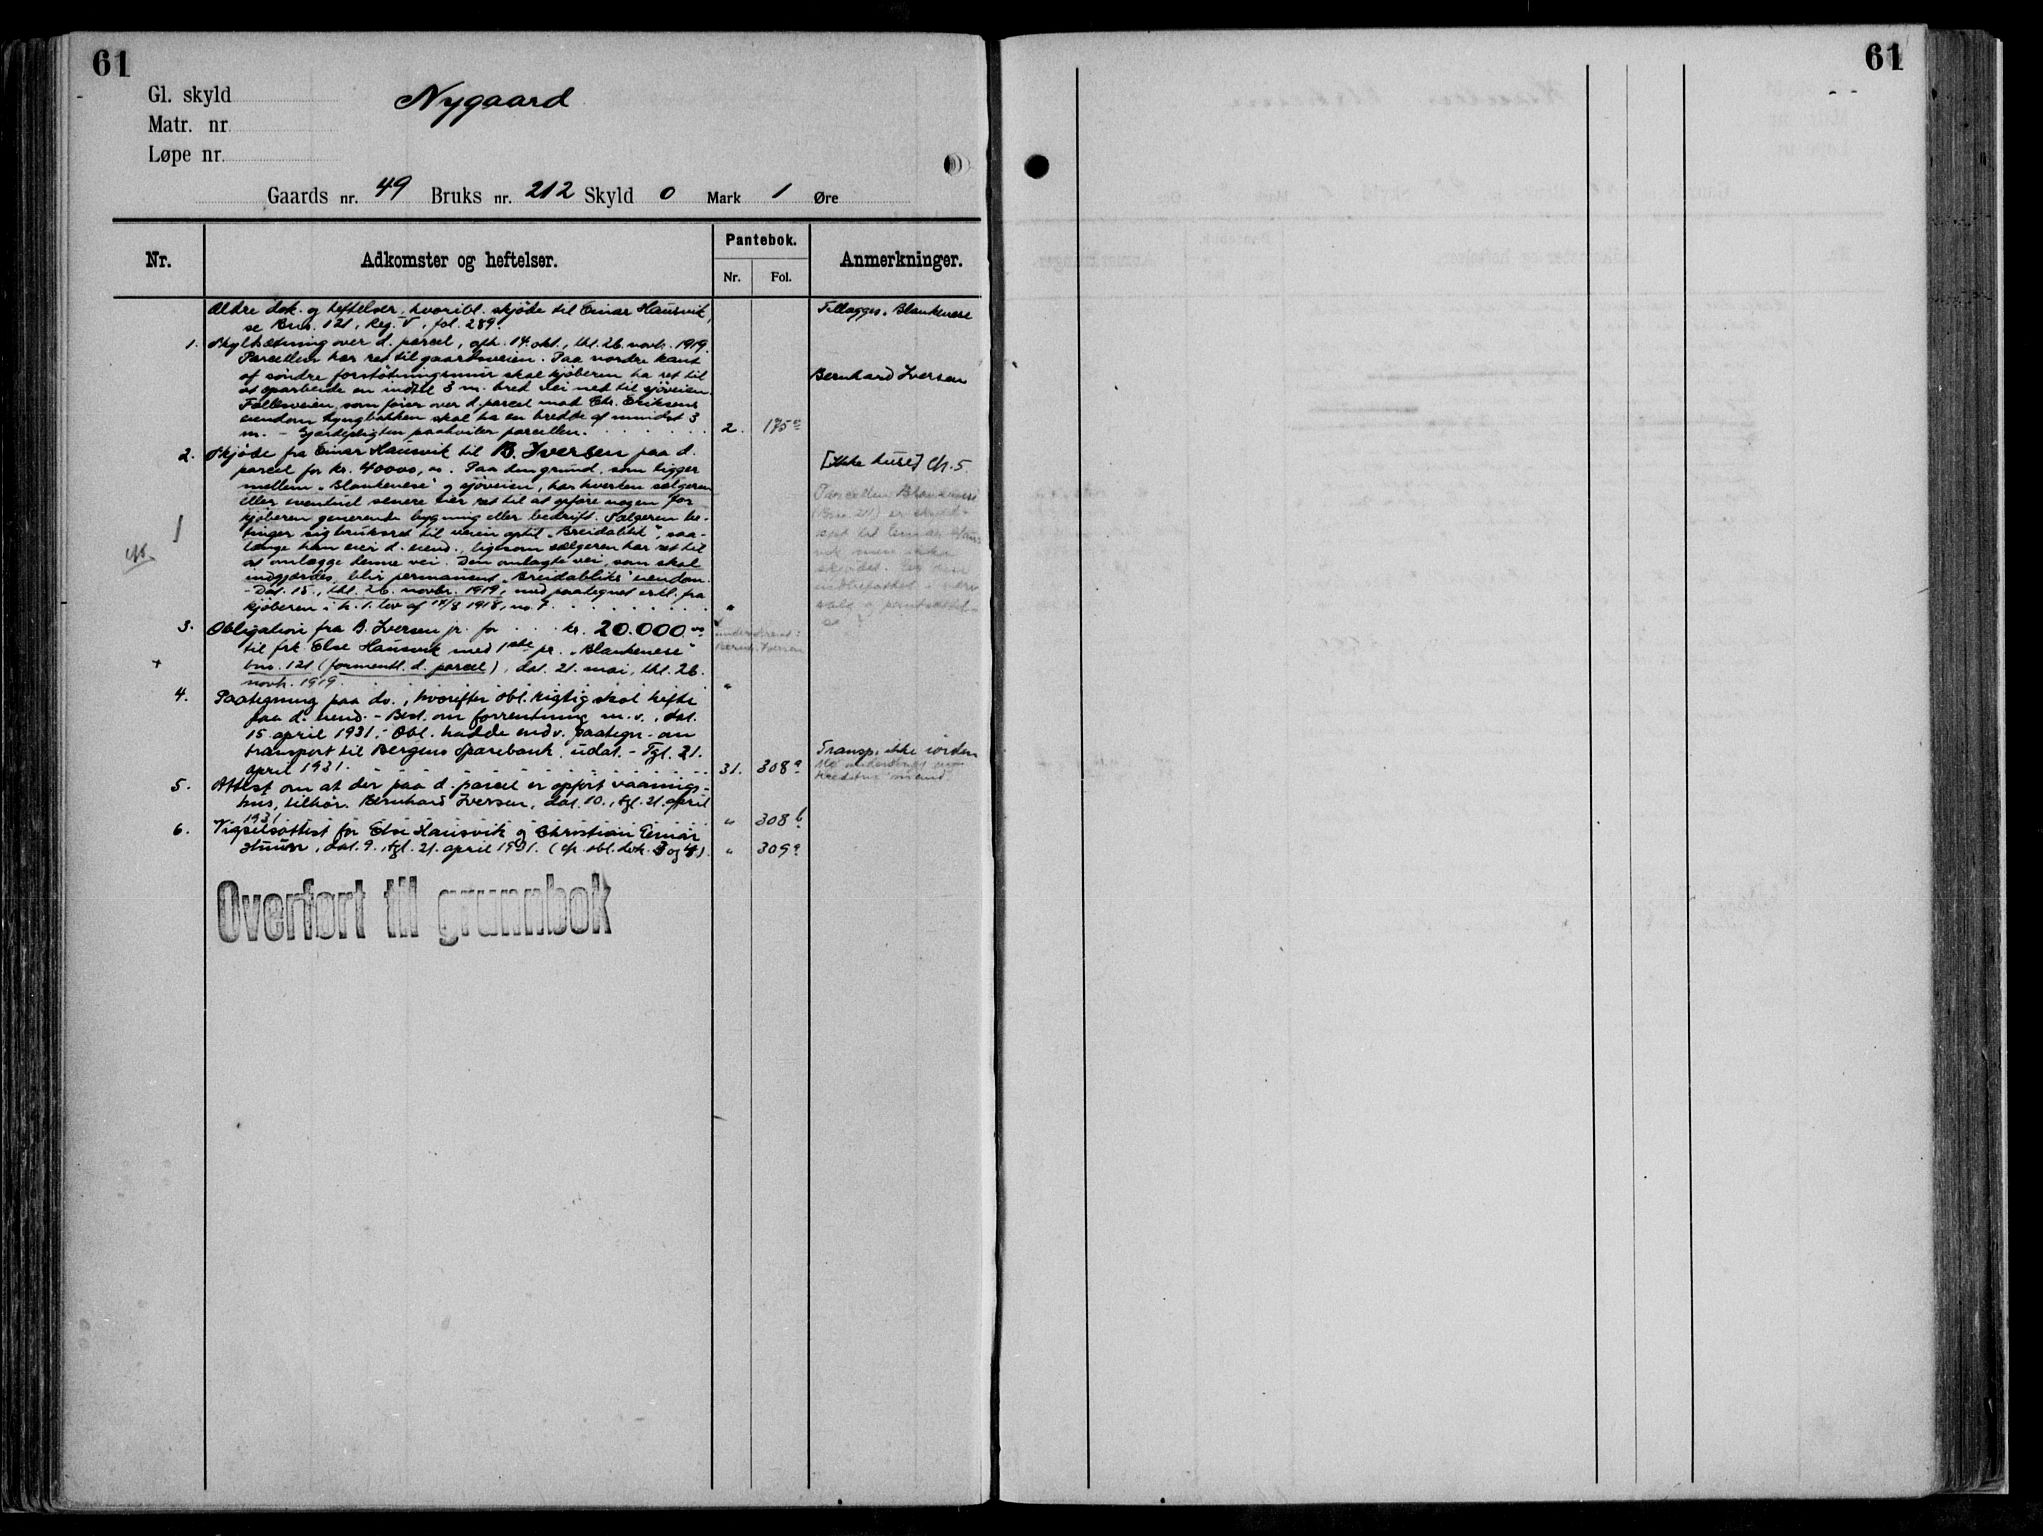 61
61
Gl. skyld
Nygaard
Matr. nr
Løpe nr.
Gaards nr. 49 Bruks nr. 212 Skyld 0 Mark 1 Øre
Nr.
Adkomster og heftelser.
Pantebok.
Nr.
Fol.
Anmerkninger.
Ældre dok. og heftelser, hvoribl. skjøde til Einar Hausvik,
se Bns. 121, Reg. V, fol. 289.
Tillægges Blankenese
1. Skyldsetning over d. parcel, afh. 14. okt., thl. 26. novb. 1919.
Parcellen har ret til gaardsveien. Paa nordre kant
af søndre forstøtningsmur skal kjøberen ha ret til
at oparbeide en indtil 3 m. bred vei ned til sjøveien.
Bernhard Iversen
Fællesveien, som fører over d. parcel mod Chr. Eriksens
eiendom Lyngbakken skal ha en bredde af mindst 3
m. - Gjerdepligten paahviler parcellen. 2. 175 a
2. Skjøde fra Einar Hausvik til B. Iversen paa d.
parcel for kr. 40000, oo. Paa den grund, som ligger
[Ikke huse] cfr. 5.
mellem "Blankenese" og sjøveien, har hverken sælgeren
eller eventuel senere eier ret til at opføre nogen for
kjøberen generende bygning eller bedrift. Sælgeren be-
tinger sig bruksret til veien optil "Breidablik", saa-
længe han eier d. eiend., ligesom sælgeren har ret til
at omlægge denne vei. Den omlagte vei, som skal
indgjærdes, blir permanent "Breidabliks" eiendom.
- Dat. 15., thl. 26. novbr. 1919, med paategnet erkl. fra
kjøberen i h. t. lov af 14/8 1918, no. 7. "
Parcellen Blankenese
3. Obligation fra B. Iversen jr. for kr. 20.000 oo
til frk. Else Hausvik med 1ste pr. "Blankenese"
bns. 121 (formentl. d. parcel), dat. 21. mai, thl. 26.
novb. 1919. "
4. Paategning paa do., hvorefter obl. rigtig skal hefte
paa d. eiend. - Best. om forrentning m. v., dat.
15. april 1931. - Obl. hadde endv. paategn. om
transport til Bergens Sparebank, udat. - Tgl. 21.
april 1931. 31. 308 a
Transp. ikke iorden
5. Attest om at der paa d. parcel er opført vaanings-
hus, tilhør. Bernhard Iversen, dat. 10., tgl. 21. april
1931 " 308 b
6. Vigselsattest for Else Hausvik og Christian Einar
, dat. 9., tgl. 21. april 1931. (cfr. obl. dok. 3 og 4). " 309 a
Overført til grunnbok